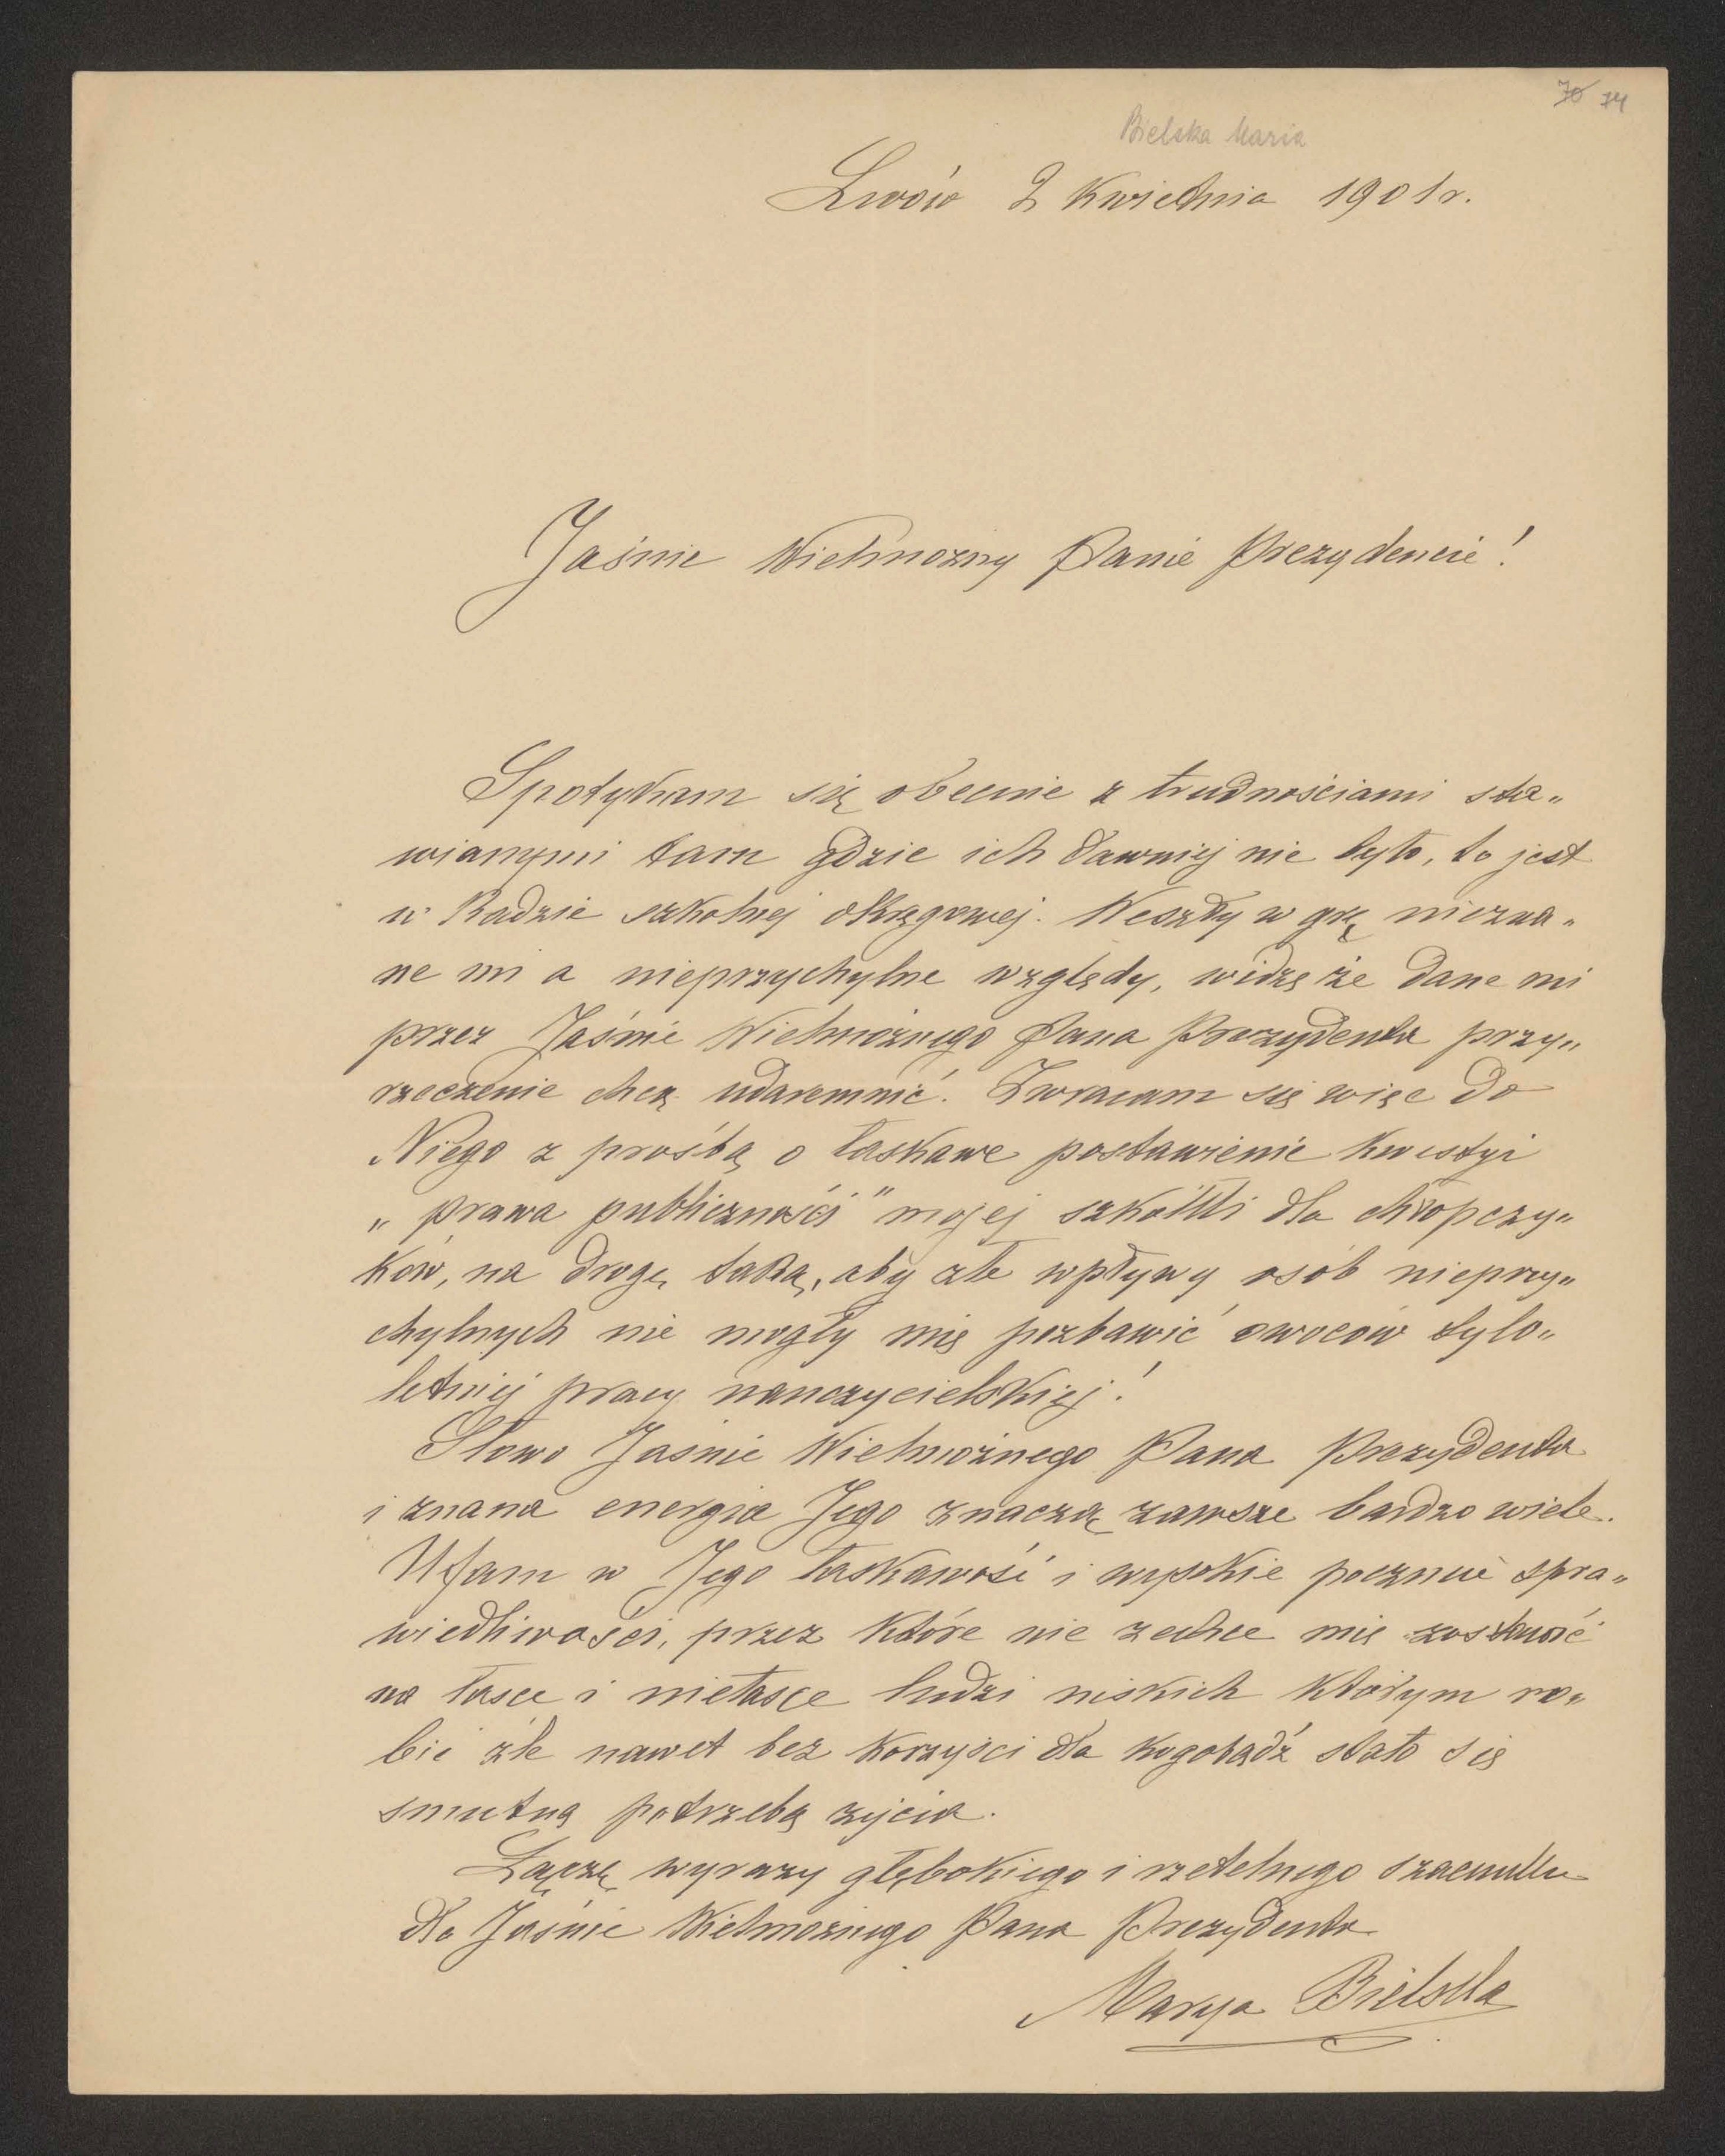 70 74
Bielska Maria
Lwów 2 Kwietnia 1901 r.
Jaśnie Wielmożny Panie Prezydencie!
Spotykam się obecnie z trudnościami sta„
wianymi tam gdzie ich dawniej nie było, to jest
w Radzie szkolnej okręgowej. Weszły w grę niezna„
ne mi a nieprzychylne względy, widzę że dane mi
przez Jaśnie Wielmożnego Pana Prezydenta przy„
rzeczenie chcą udaremnić. Zwracam się więc do
Niego z prośbą o łaskawe postawienie Kwestyi
„prawa publiczności" mojej szkółki dla chłopczy„
ków, na drogę taką, aby złe wpływy osób nieprzy„
chylnych nie mogły mię pozbawić owoców tylo„
letniej pracy nauczycielskiej!
Słowo Jaśnie Wielmożnego Pana Prezydenta
i znana energia Jego znaczą zawsze bardzo wiele.
Ufam w Jego łaskawość i wysokie poczucie spra„
wiedliwości, przez które nie zechce mię zostawić
na łasce i niełasce ludzi niskich którym ro„
bić źle nawet bez korzyści dla kogobądź stało się
smutną potrzebą życia.
Łączę wyrazy głębokiego i rzetelnego szacunku
dla Jaśnie Wielmożnego Pana Prezydenta
Marya Bielska